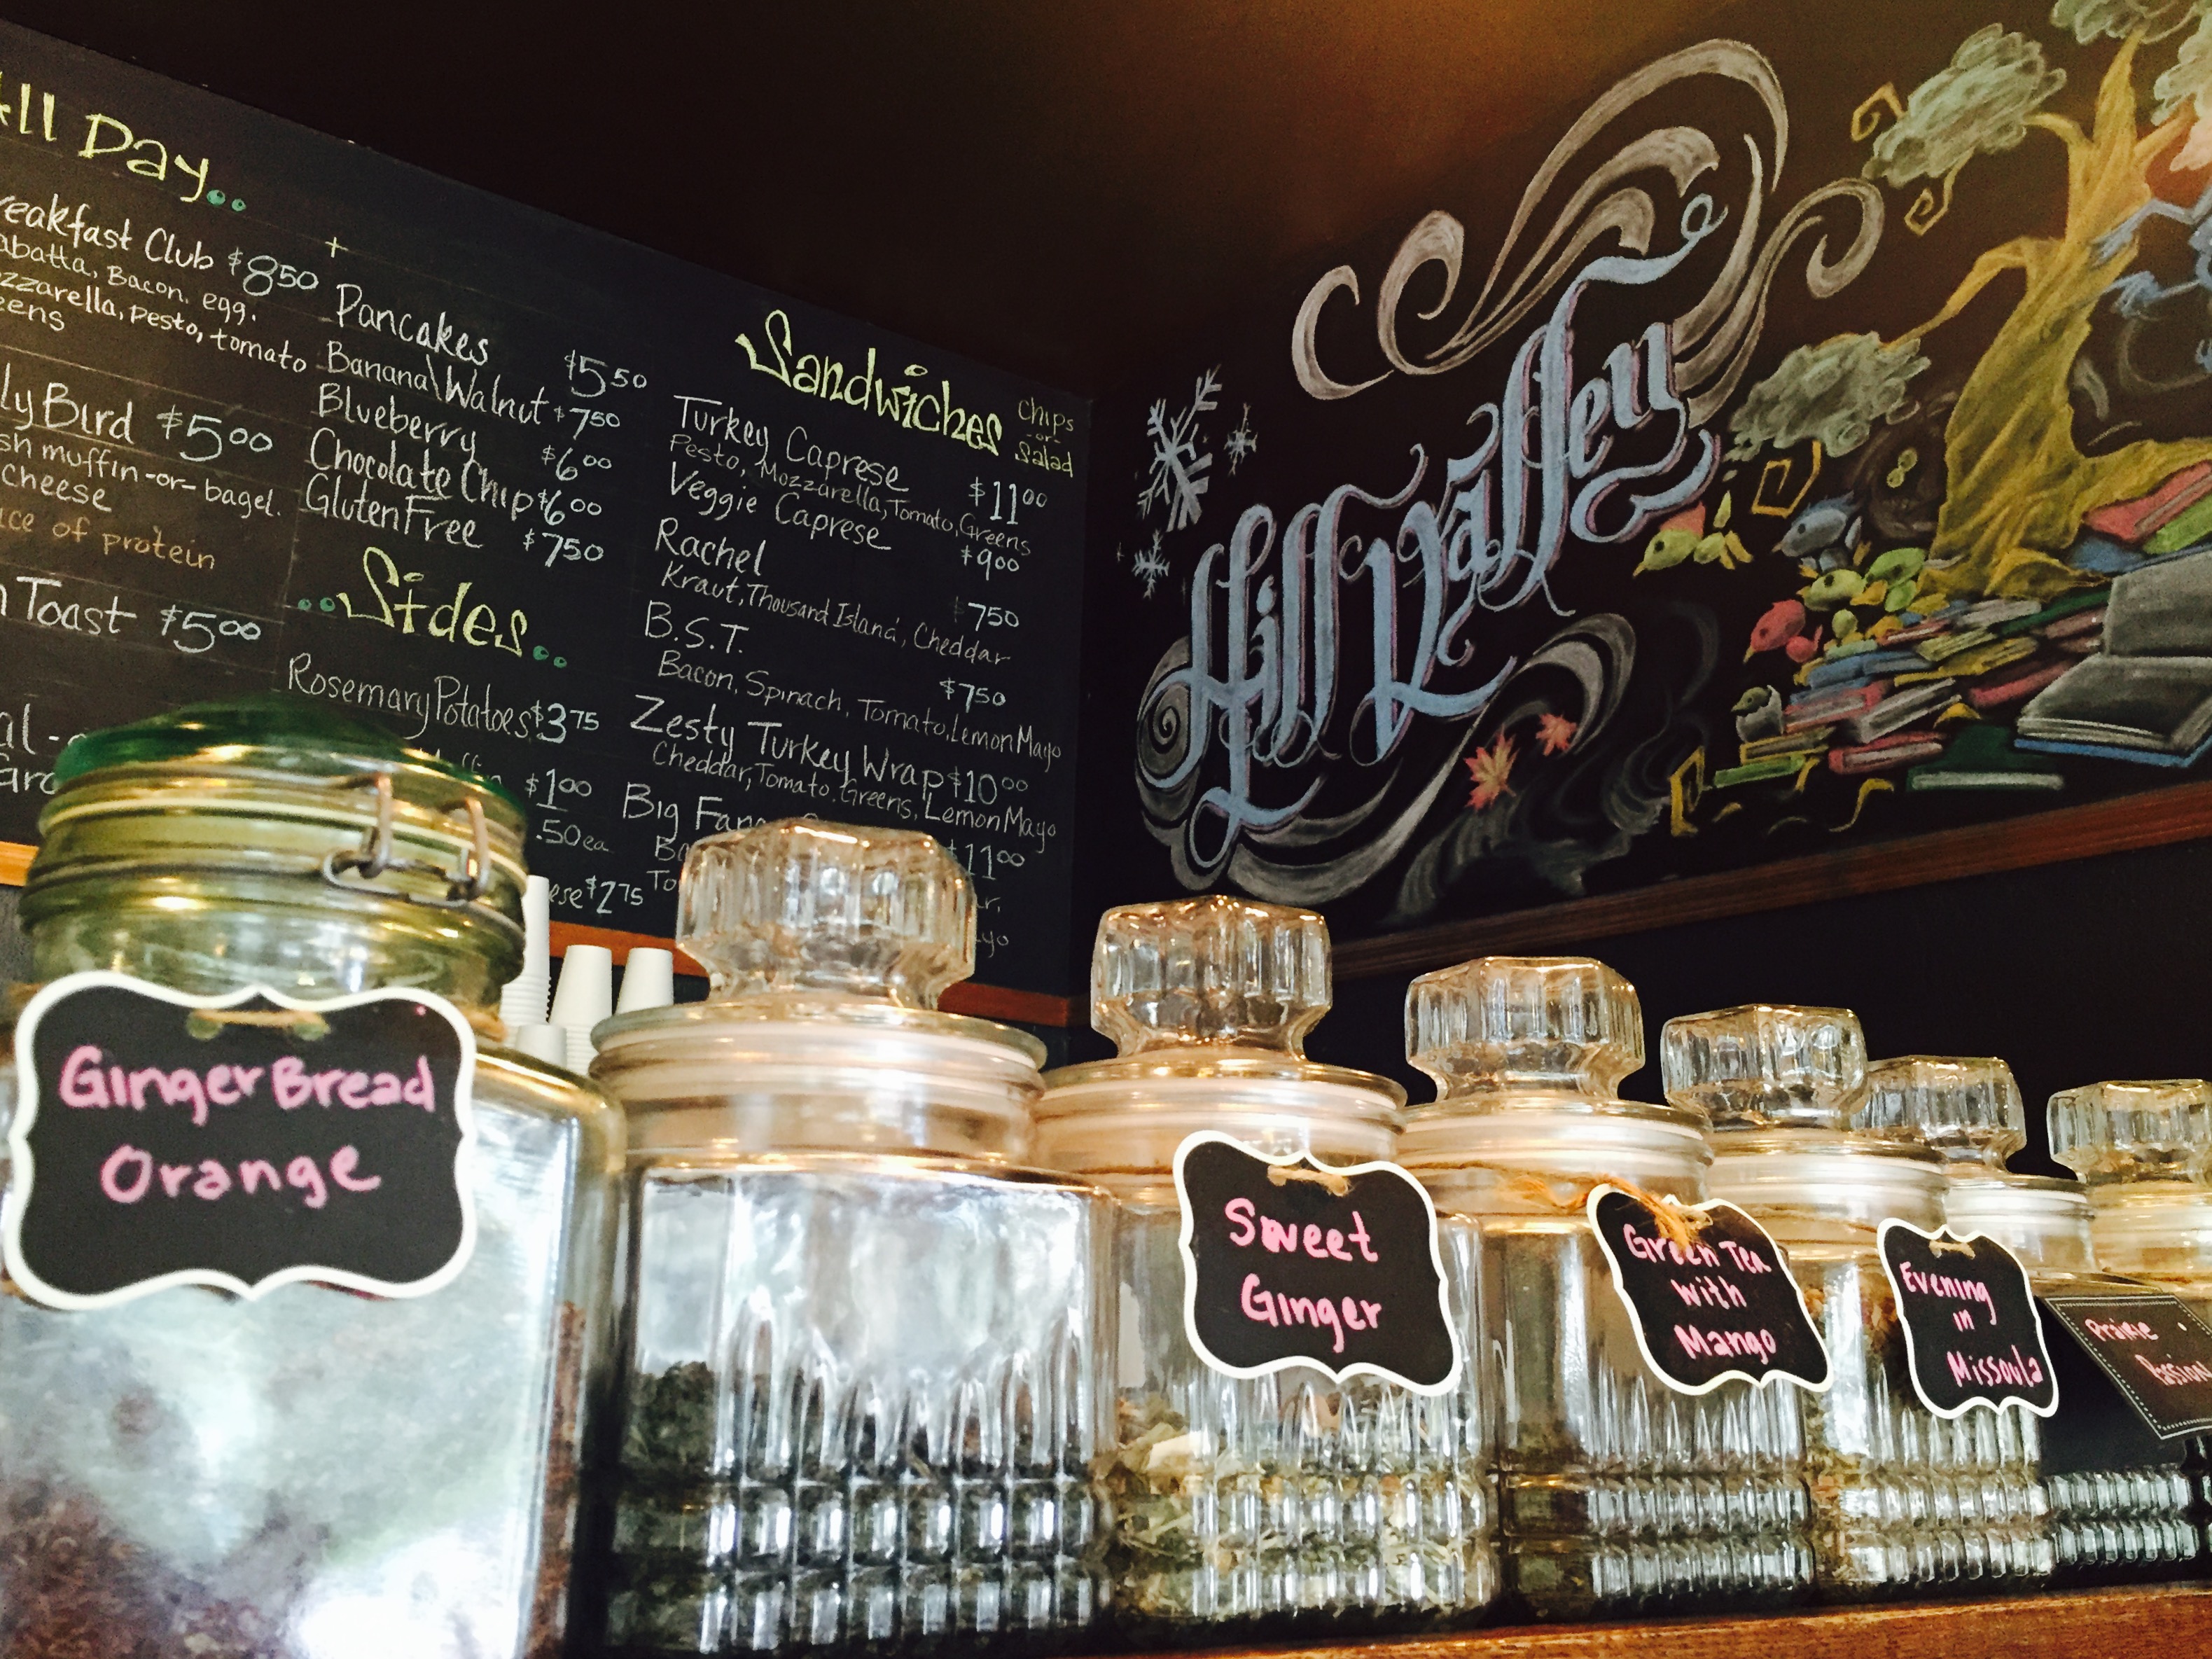 All Day..
Breakfast Club $8.50
Bacon, egg.
pesto, tomato
Bird $5.00
muffin -or- bagel.
cheese
of protein
Toast $5.00
+
Pancakes $5.50
Banana\Walnut $7.50
Blueberry $6.00
Chocolate Chip $6.00
Gluten Free $7.50
..Sides..
Rosemary Potatoes $3.75
$1.00
.50ea
$2.75
Sandwiches
Chips
-or-
Salad
Turkey Caprese $11.00
Pesto, Mozzarella, Tomato, Greens
Veggie Caprese $9.00
Rachel $7.50
Kraut, Thousand Island, Cheddar
B.S.T. $7.50
Bacon, Spinach, Tomato, Lemon Mayo
Zesty Turkey Wrap $10.00
Cheddar, Tomato, Greens, Lemon Mayo
Big $11.00
Hill Valley
GingerBread
Orange
Sweet
Ginger
Green Tea
with
Mango
Evening
in
Missoula
Prairie
Passion